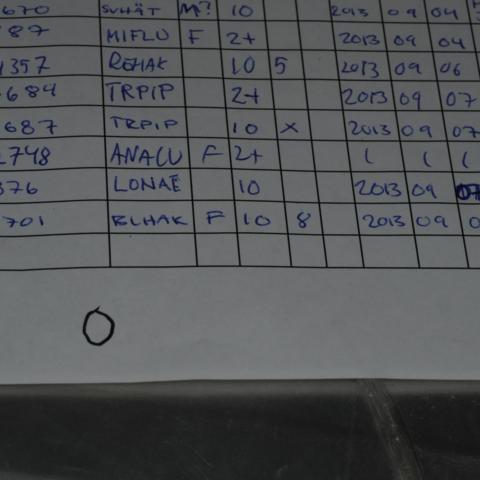 670 SVHÄT M? 10 2013 09 04
87 MIFLU F 2+ 2013 09 04
1357 REHAK 10 5 2013 09 06
684 TRPIP 2+ 2013 09 07
687 TRPIP 10 X 2013 09 07
2748 ANACU F 2+ ( ( (
376 LONAE 10 2013 09 07
701 BLHAK F 10 8 2013 09 0
O